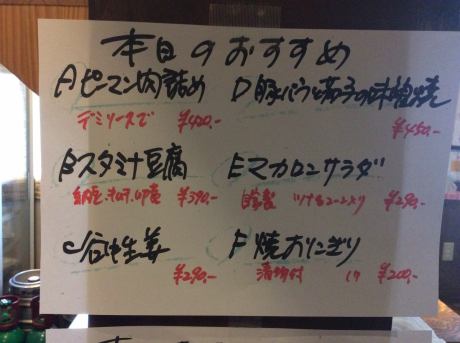 本日のおすすめ
Aピーマン肉詰め
デミソースで ¥420.-
Bスタミナ豆腐
納豆、キムチ、卵黄 ¥390.-
C谷中生姜
¥290.-
D豚バラと茄子の味噌焼
¥450.-
Eマカロニサラダ
自家製 ツナ&コーン入り ¥290.-
F焼おにぎり
漬物付 ¥200.-